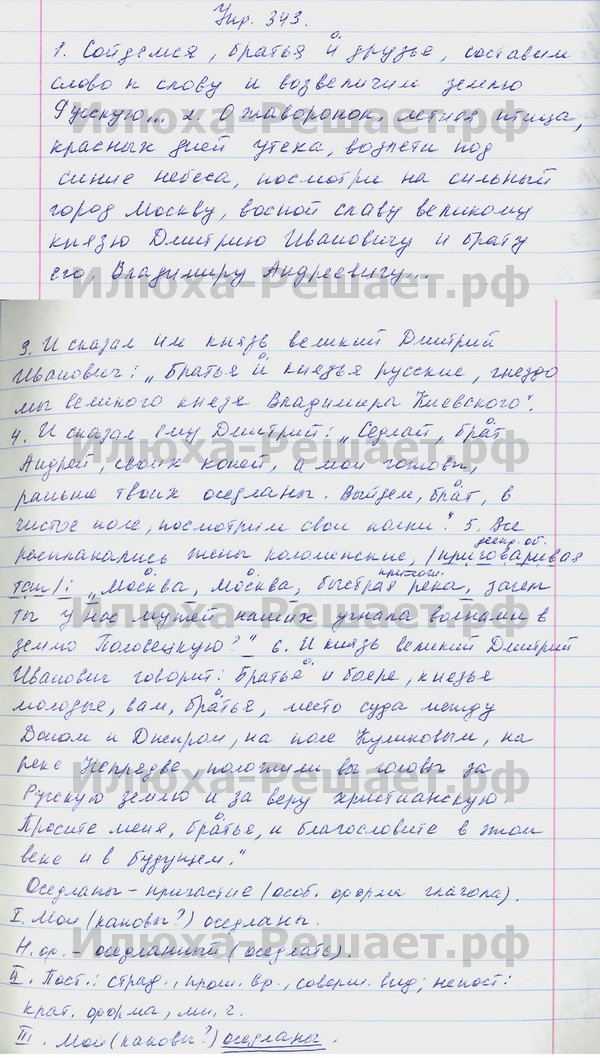 Упр. 343.
1. Сойдемся, братья и друзья, составим
слово к слову и возвеличим землю
Русскую... 2. О жаворонок, летняя птица,
красных дней утеха, возлети под
синие небеса, посмотри на сильный
город Москву, воспой славу великому
князю Дмитрию Ивановичу и брату
его, Владимиру Андреевичу...
3. И сказал им князь великий Дмитрий
Иванович: „Братья и князья русские, гнездо
мы великого князя Владимира Киевского".
4. И сказал ему Дмитрий: „Седлай, брат
Андрей, своих коней, а мои готовы,
раньше твоих оседланы. Выйдем, брат, в
чистое поле, посмотрим свои полки". 5. Все
дееп. об.
расплакались жены коломенские, /приговаривая
прилож.
так/: „Москва, Москва, быстрая река, зачем
ты у нас мужей наших угнала волнами в
землю Половецкую?" 6. И князь великий Дмитрий
Иванович говорит: Братья и бояре, князья
молодые, вам, братья, место суда между
Доном и Днепром, на поле Куликовым, на
реке Непрядве, положили вы головы за
Русскую землю и за веру христианскую.
Простите меня, братья, и благословите в этом
веке и в будущем."
Оседланы – причастие (особ. форма глагола).
I. Мои (каковы?) оседланы.
Н. ф. – оседланный (оседлать).
II. Пост.: страд., прош. вр., соверш. вид; непост:
крат. форма, мн. ч.
III. Мои (каковы?) оседланы.
Илюха-Решает.рф
Илюха-Решает.рф
Илюха-Решает.рф
Илюха-Решает.рф
Илюха-Решает.рф
Илюха-Решает.рф
Илюха-Решает.рф